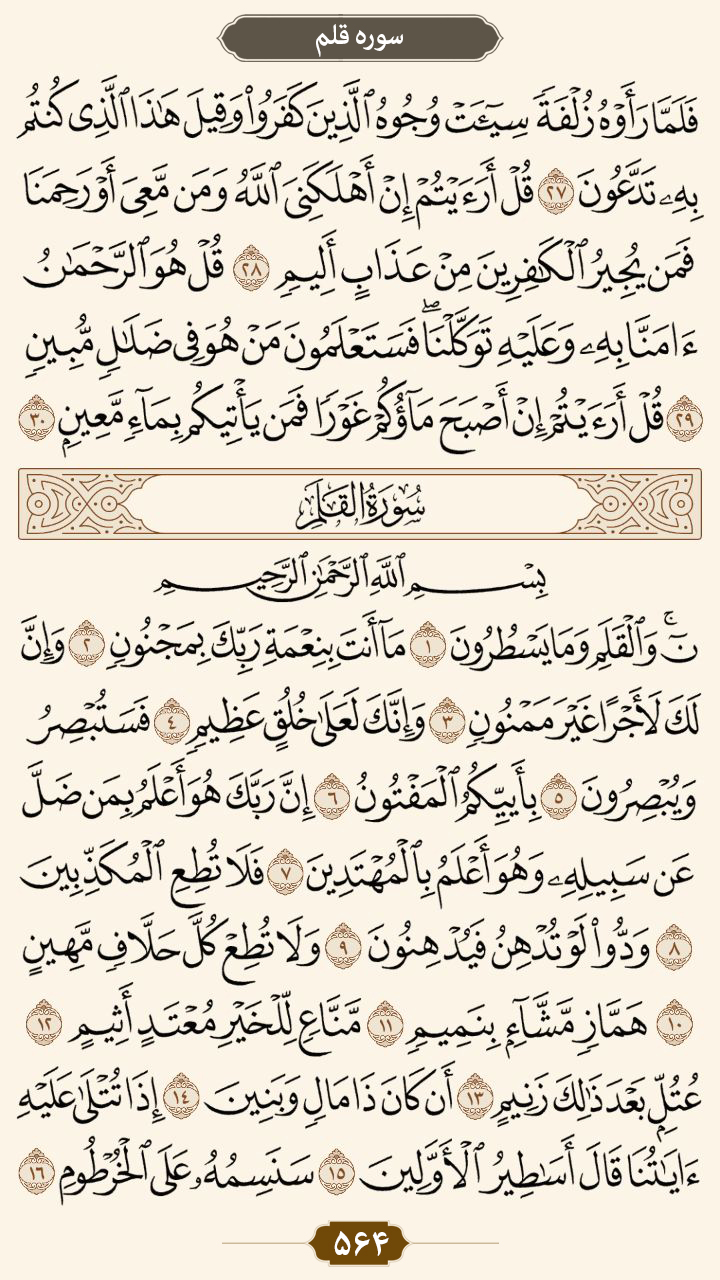 سوره قلم
فَلَمَّا رَأَوۡهُ زُلۡفَةٗ سِيٓـَٔتۡ وُجُوهُ ٱلَّذِينَ كَفَرُواْ وَقِيلَ هَٰذَا ٱلَّذِي كُنتُم
بِهِۦ تَدَّعُونَ ٢٧ قُلۡ أَرَءَيۡتُمۡ إِنۡ أَهۡلَكَنِيَ ٱللَّهُ وَمَن مَّعِيَ أَوۡ رَحِمَنَا
فَمَن يُجِيرُ ٱلۡكَٰفِرِينَ مِنۡ عَذَابٍ أَلِيمٖ ٢٨ قُلۡ هُوَ ٱلرَّحۡمَٰنُ
ءَامَنَّا بِهِۦ وَعَلَيۡهِ تَوَكَّلۡنَاۖ فَسَتَعۡلَمُونَ مَنۡ هُوَ فِي ضَلَٰلٖ مُّبِينٖ
٢٩ قُلۡ أَرَءَيۡتُمۡ إِنۡ أَصۡبَحَ مَآؤُكُمۡ غَوۡرٗا فَمَن يَأۡتِيكُم بِمَآءٖ مَّعِينِۭ ٣٠
سُورَةُ القَلَمِ
بِسۡمِ ٱللَّهِ ٱلرَّحۡمَٰنِ ٱلرَّحِيمِ
نٓۚ وَٱلۡقَلَمِ وَمَا يَسۡطُرُونَ ١ مَآ أَنتَ بِنِعۡمَةِ رَبِّكَ بِمَجۡنُونٖ ٢ وَإِنَّ
لَكَ لَأَجۡرًا غَيۡرَ مَمۡنُونٖ ٣ وَإِنَّكَ لَعَلَىٰ خُلُقٍ عَظِيمٖ ٤ فَسَتُبۡصِرُ
وَيُبۡصِرُونَ ٥ بِأَييِّكُمُ ٱلۡمَفۡتُونُ ٦ إِنَّ رَبَّكَ هُوَ أَعۡلَمُ بِمَن ضَلَّ
عَن سَبِيلِهِۦ وَهُوَ أَعۡلَمُ بِٱلۡمُهۡتَدِينَ ٧ فَلَا تُطِعِ ٱلۡمُكَذِّبِينَ
٨ وَدُّواْ لَوۡ تُدۡهِنُ فَيُدۡهِنُونَ ٩ وَلَا تُطِعۡ كُلَّ حَلَّافٖ مَّهِينٍ
١٠ هَمَّازٖ مَّشَّآءِۭ بِنَمِيمٖ ١١ مَّنَّاعٖ لِّلۡخَيۡرِ مُعۡتَدٍ أَثِيمٍ ١٢
عُتُلِّۭ بَعۡدَ ذَٰلِكَ زَنِيمٍ ١٣ أَن كَانَ ذَا مَالٖ وَبَنِينَ ١٤ إِذَا تُتۡلَىٰ عَلَيۡهِ
ءَايَٰتُنَا قَالَ أَسَٰطِيرُ ٱلۡأَوَّلِينَ ١٥ سَنَسِمُهُۥ عَلَى ٱلۡخُرۡطُومِ ١٦
۵۶۴